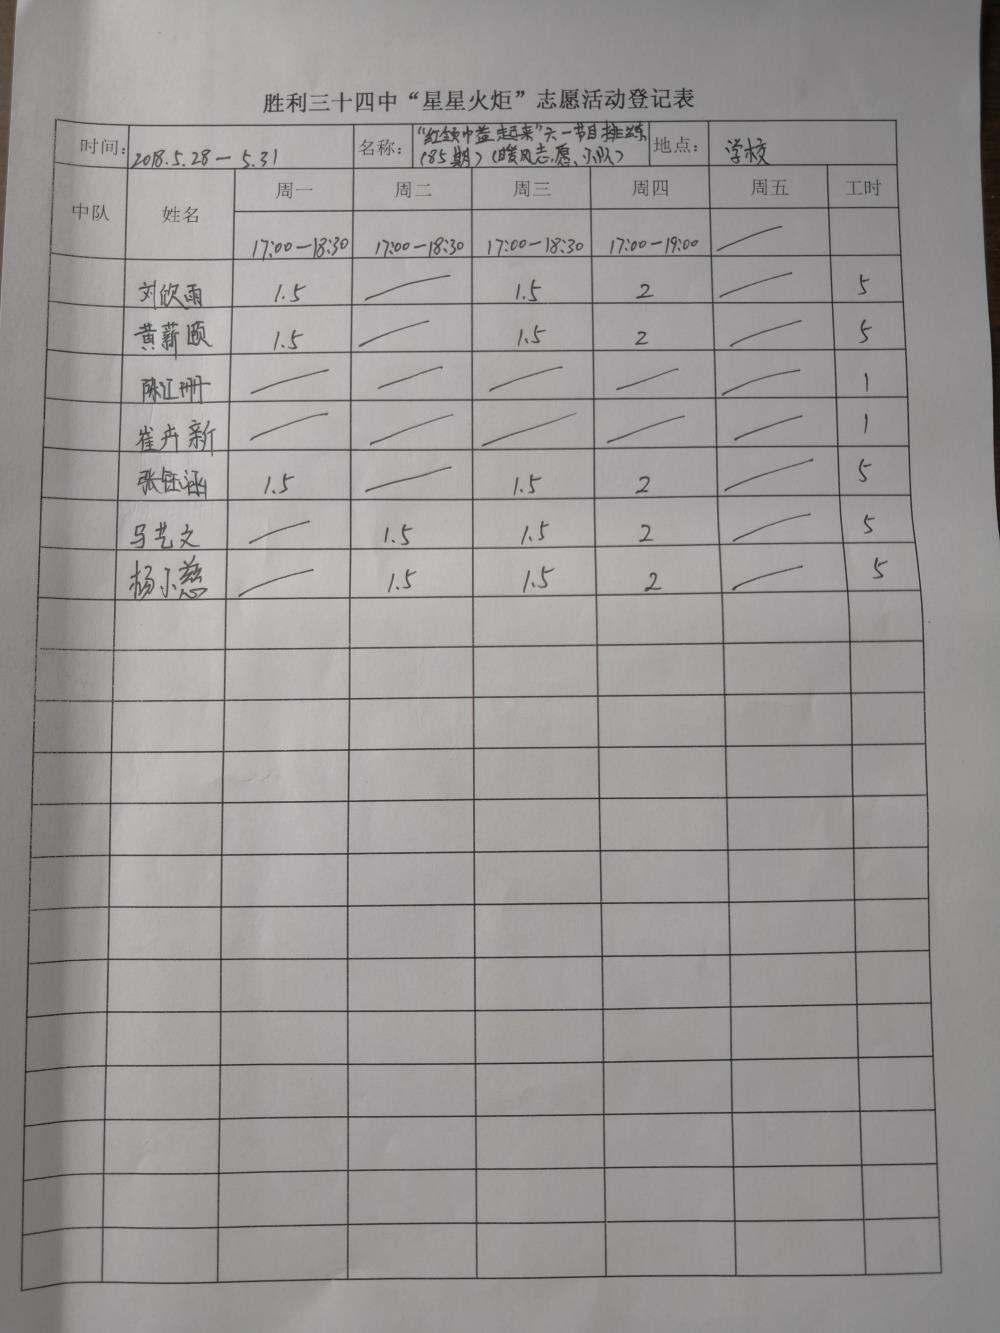 胜利三十四中“星星火炬”志愿活动登记表
时间: 2018.5.28—5.31 名称: “红领巾益起来”六一节目排练 (85期)(暖风志愿小队) 地点: 学校
中队 姓名 周一 周二 周三 周四 周五 工时
17:00—18:30 17:00—18:30 17:00—18:30 17:00—19:00
刘欣雨 1.5 1.5 2 5
黄薪颐 1.5 1.5 2 5
陈江珊 1
崔卉新 1
张钰涵 1.5 1.5 2 5
马艺文 1.5 1.5 2 5
杨小慈 1.5 1.5 2 5